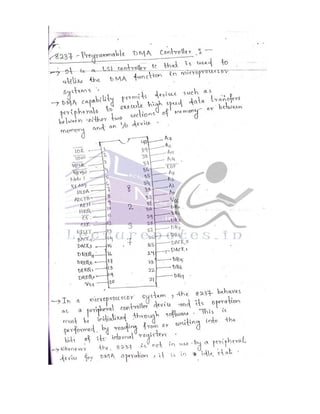 8237 - Programmable DMA Controller :-
→ It is a LSI controller IC that is used to
utilize the DMA function in microprocessor
systems.
→ DMA capability permits devices such as
peripherals to execute high speed data transfers
between either two sections of memory or between
memory and an I/O device.
IOR 1 40 A7
2 39 A6
3 38
4 37 A4
5 36 EOP
READY 6 35 A3
HLDA 7 34 A2
ADSTB 8 33 A1
AEN 9 32 A0
HRQ 10 31 Vcc
CS 11 30 DB0
CLK 12 29 DB1
RESET 13 28
DACK2 14 27
15 26
DREQ3 16 25
DREQ2 17 24 DACK1
DREQ1 18 23 DB5
DREQ0 19 22 DB6
Vss 20 21 DB7
8
2
3
7
lecturenotes.in
→ In a microprocessor system, the 8237 behaves
as a peripheral controller device and its operation
must be initialized through software. This is
performed by reading from or writing into the
bits of its internal registers.
→ Whenever the 8237 is not in use by a peripheral
device for DMA operation, it is in idle state.